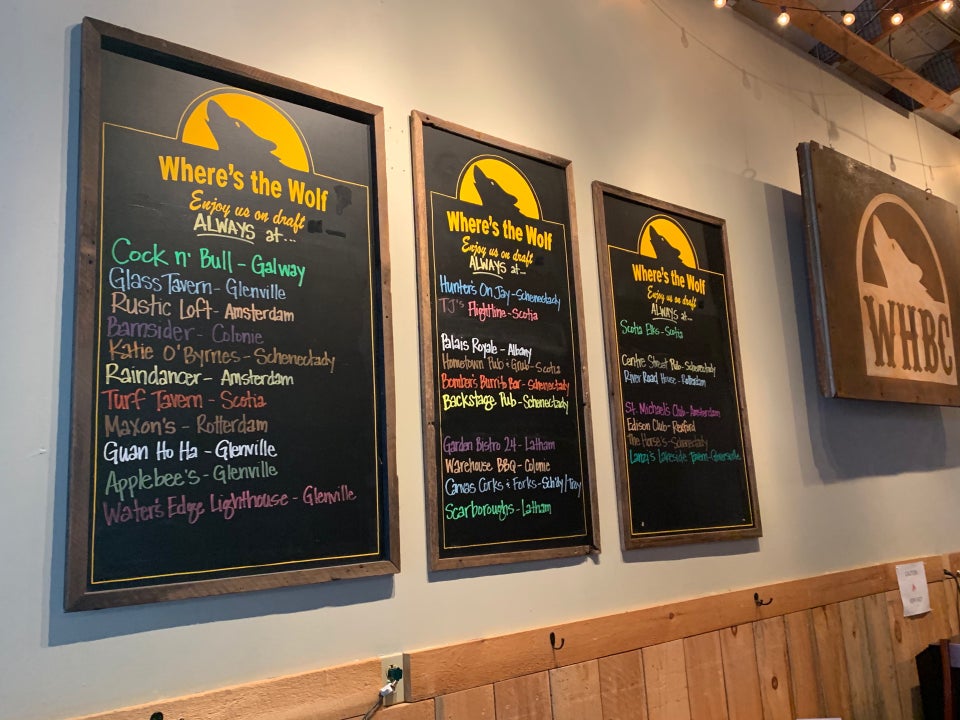 Where's the Wolf
Enjoy us on draft
ALWAYS at...
Cock n' Bull - Galway
Glass Tavern - Glenville
Rustic Loft - Amsterdam
Barnsider - Colonie
Katie O'Byrnes - Schenectady
Raindancer - Amsterdam
Turf Tavern - Scotia
Maxon's - Rotterdam
Guan Ho Ha - Glenville
Applebee's - Glenville
Water's Edge Lighthouse - Glenville
Where's the Wolf
Enjoy us on draft
ALWAYS at...
Hunter's On Jay - Schenectady
TJ's Flightline - Scotia
Palais Royale - Albany
Hometown Pub & Grub - Scotia
Bomber's Burrito Bar - Schenectady
Backstage Pub - Schenectady
Garden Bistro 24 - Latham
Warehouse BBQ - Colonie
Canvas Corks & Forks - Schdy/Troy
Scarboroughs - Latham
Where's the Wolf
Enjoy us on draft
ALWAYS at...
Scotia Elks - Scotia
Centre Street Pub - Schenectady
River Road House - Rotterdam
St. Michael's Club - Amsterdam
Edison Club - Rexford
The Horse's - Schenectady
Lanzi's Lakeside Tavern - Gloversville
WHBC
CAUTION